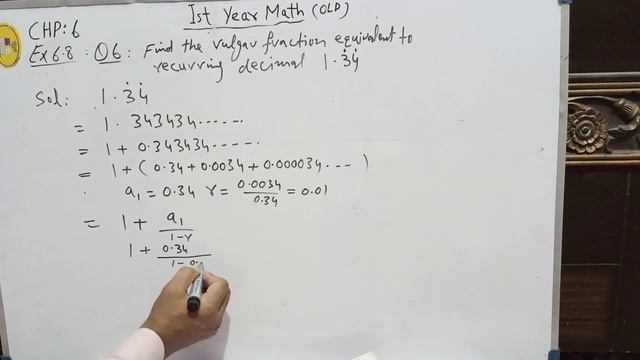 1st Year Math (OLD)
CHP: 6
Ex 6.8 Q6: Find the vulgar fraction equivalent to
recurring decimal 1.3̇4̇
Sol: 1.3̇4̇
= 1.343434.....
= 1 + 0.343434.....
= 1 + (0.34 + 0.0034 + 0.000034 ...)
a₁ = 0.34 r = 0.0034/0.34 = 0.01
= 1 + a₁/1-r
1 + 0.34/1-0.